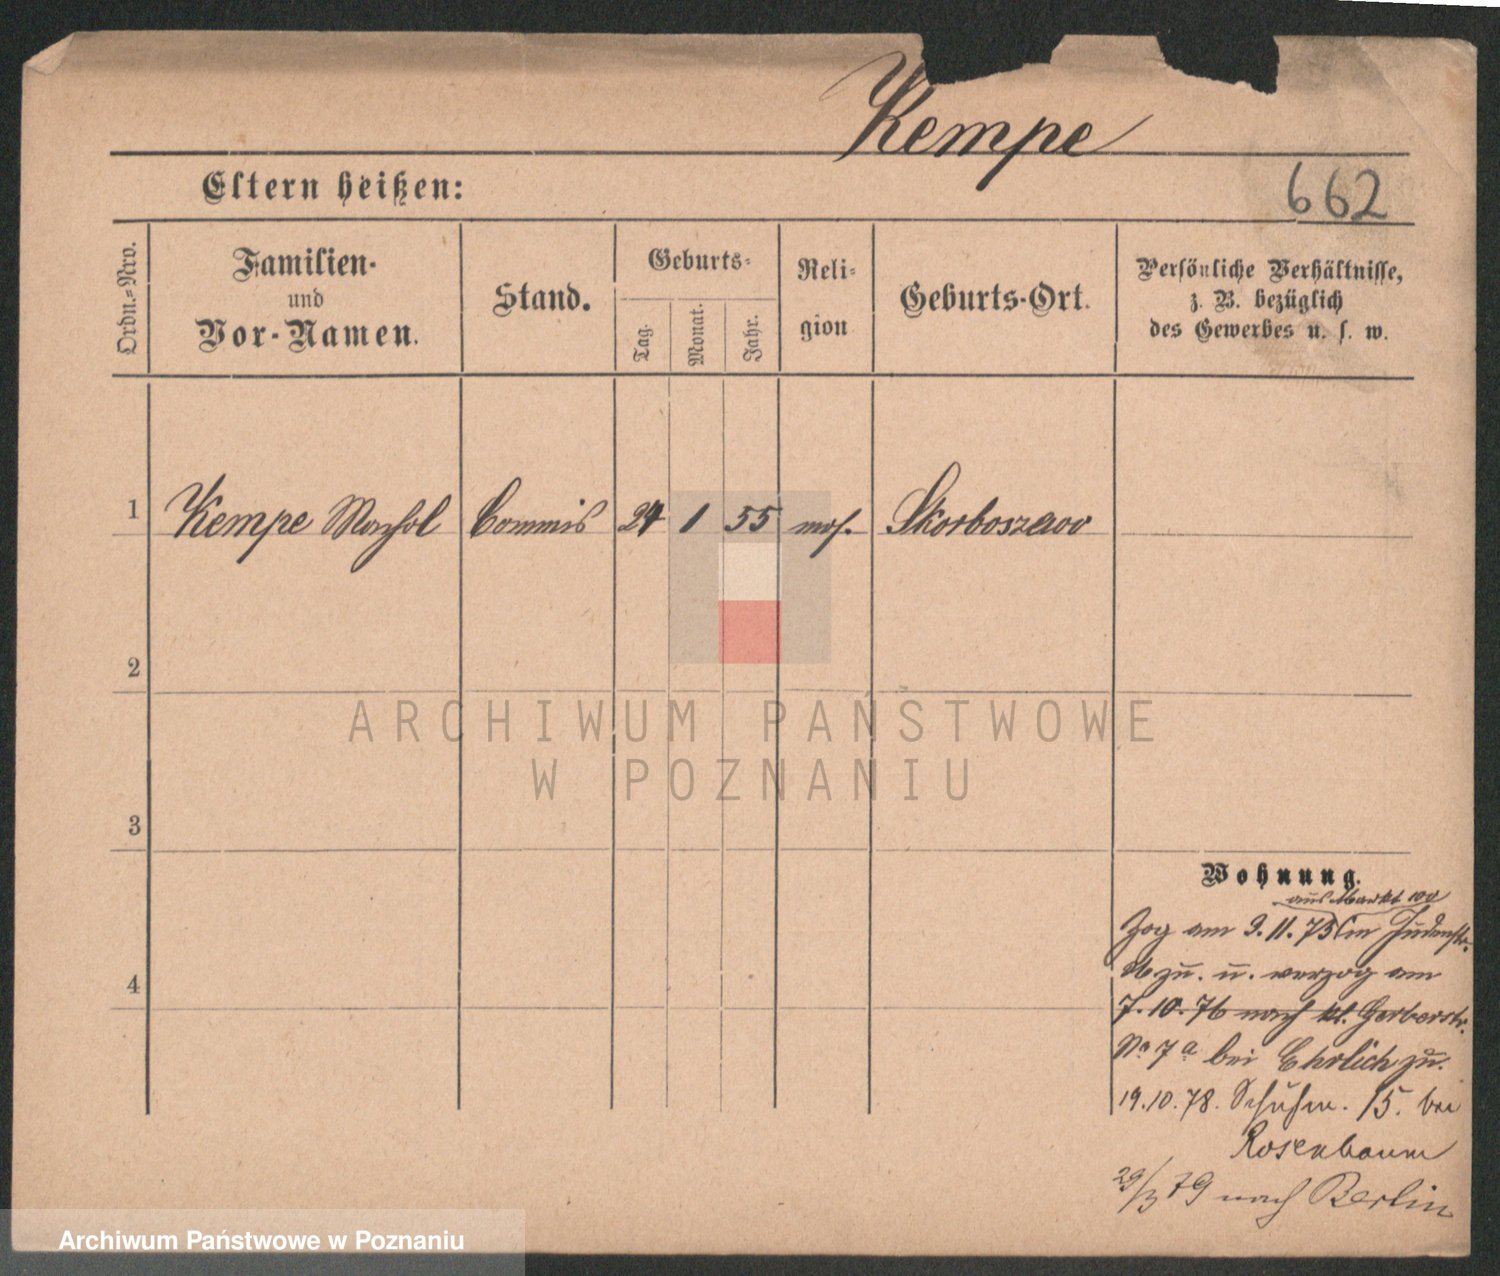 Kempe
Eltern heißen:
662
Ordn.-Nro.
Familien-
und
Vor-Namen.
Stand.
Geburts-
Tag.
Monat.
Jahr.
Reli-
gion
Geburts-Ort.
Persönliche Verhältnisse,
z. B. bezüglich
des Gewerbes u. s. w.
1 Kempe Commis 24 1 55 mos. Skorboszewo
2
3
4
ARCHIWUM PAŃSTWOWE
W POZNANIU
Wohnung.
aus Markt 100
Zog am 9.11.75 in Judenstr.
zu. u. verzog am
7.10.76 nach kl. Gerberstr.
No 7a bei Ehrlich zu.
19.10.78. Schuhm. 15. bei
Rosenbaum
29/3 79 nach Berlin
Archiwum Państwowe w Poznaniu